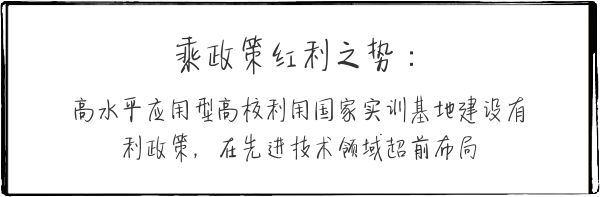 乘政策红利之势：
高水平应用型高校利用国家实训基地建设有
利政策，在先进技术领域超前布局